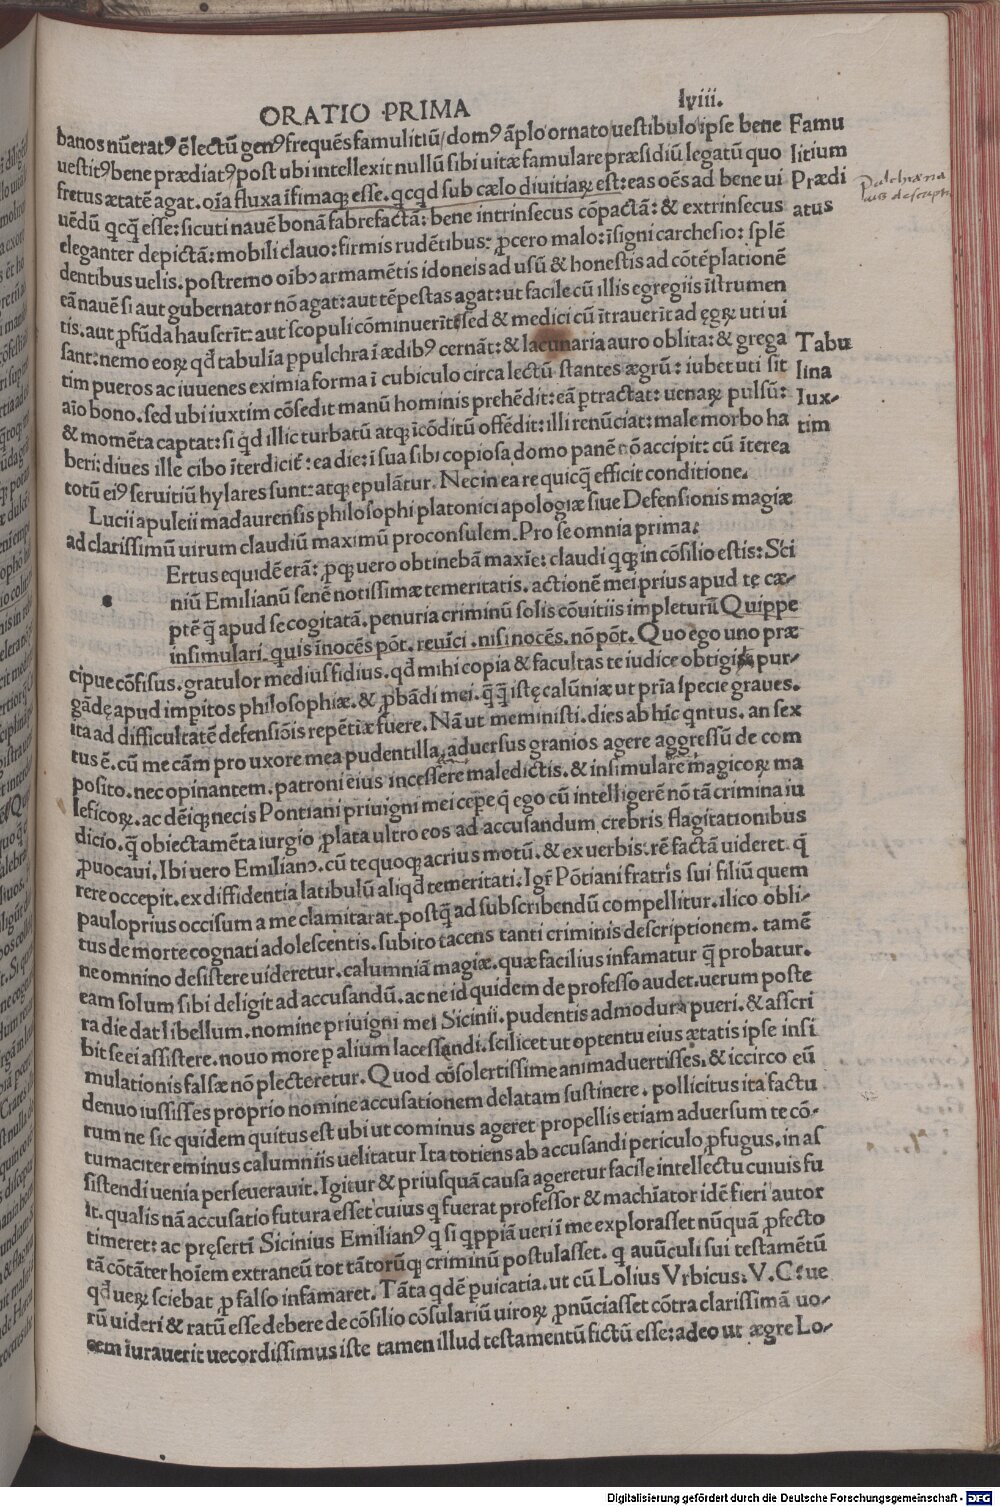 ORATIO PRIMA
lviii.
banos nūerat⁹ ē lectū gen⁹ frequēs famulitiū/dom⁹ āplo ornato uestibulo ipse bene
uestit⁹ bene prædiat⁹ post ubi intellexit nullū sibi uitæ famulare præsidiū legatū quo
fretus ætatē agat. oīa fluxa īfimaqꝫ esse. qcqd sub cælo diuitiaꝝ est: eas oēs ad bene ui
uēdū qcq̄ esse: sicuti nauē bonā fabrefactā: bene intrinsecus cōpactā: & extrinsecus
eleganter depictā: mobili clauo: firmis rudētibus: ꝓcero malo: īsigni carchesio: splē
dentibus uelis. postremo oībꝫ armamētis idoneis ad usū & honestis ad cōtēplationē
eā nauē si aut gubernator nō agat: aut tēpestas agat: ut facile cū illis egregiis īstrumen
tis. aut ꝓfūda hauserīt: aut scopuli cōminuerīt: sed & medici cū ītrauerīt ad ęgꝝ uti ui
sant: nemo eoꝝ qd tabulīa ꝑpulchra ī ædib⁹ cernāt: & lacunaria auro oblita: & grega
tim pueros ac iuuenes eximia forma ī cubiculo circa lectū stantes ægrū: iubet uti sit
aīo bono. sed ubi iuxtim cōsedit manū hominis prehēdit: eā ꝑtractat: uenaꝝ pulsū:
& momēta captat: si qd illic turbatū atqꝫ īcōditū offēdit: illi renūciat: male morbo ha
beri: diues ille cibo īterdicit: ea die: ī sua sibi copiosa domo panē nō accipit: cū īterea
totū ei⁹ seruitiū hylares sunt: atqꝫ epulātur. Nec in ea re quicq̄ efficit conditione.
Lucii apuleii madaurensis philosophi platonici apologiæ siue Defensionis magiæ
ad clarissimū uirum claudiū maximū proconsulem. Pro se omnia prima.
Ertus equidē erā: ꝓqꝫ uero obtinebā maxīe: claudi qqꝫ in cōsilio estis: Sci
niū Emilianū senē notissimæ temeritatis. actionē mei prius apud te cæ-
ptē q̄ apud se cogitatā. penuria criminū solis cōuitiis impleturū Quippe
insimulari. quis īnocēs pōt. reuīci. nisi nocēs. nō pōt. Quo ego uno præ
cipue cōfisus. gratulor mediusfidius. qd mihi copia & facultas te iudice obtigit pur-
gādę apud imꝑitos philosophiæ. & ꝓbādi mei. q̄q̄ istę calūniæ ut prīa specie graues.
ita ad difficultatē defensiōis repētiæ fuere. Nā ut meministi. dies ab hīc qntus. an sex
tus ē. cū me cām pro uxore mea pudentilla, aduersus granios agere aggressū de com
posito. nec opinantem. patroni eius incessere maledictis. & insimulare magicoꝝ ma
leficoꝝ. ac dēiqꝫ necis Pontiani priuigni mei cepe q̄ ego cū intelligerē nō tā crimina iu
dicio. q̄ obiectamēta iurgio ꝓlata ultro eos ad accusandum crebris flagitationibus
ꝓuocaui. Ibi uero Emilianꝰ. cū te quoqꝫ acrius motū. & ex uerbis. rē factā uideret. q̄
rere occepit. ex diffidentia latibulū aliqd temeritati. Igr̄ Pōtiani fratris sui filiū quem
paulo prius occisum a me clamitarat. postq̄ ad subscribendū compellitur. ilico obli-
tus de morte cognati adolescentis. subito tacens tanti criminis descriptionem. tamē
ne omnino desistere uideretur. calumniā magiæ. quæ facilius infamatur q̄ probatur.
eam solum sibi deligit ad accusandū. ac ne id quidem de professo audet. uerum poste
ra die dat libellum. nomine priuigni mei Sicinii. pudentis admodum pueri. & asscri
bit se ei assistere. nouo more ꝑ alium lacessandi. scilicet ut optentu eius ætatis ipse insi
mulationis falsæ nō plecteretur. Quod cōsolertissime animaduertisses. & iccirco eū
denuo iussisses proprio nomine accusationem delatam sustinere. pollicitus ita factu
rum ne sic quidem quitus est ubi ut cominus ageret propellis etiam aduersum te cō-
tumaciter eminus calumniis uelitatur Ita totiens ab accusandi periculo ꝓfugus. in as
sistendi uenia perseuerauit. Igitur & priusquā causa ageretur facile intellectu cuiuis fu
it. qualis nā accusatio futura esset cuius q fuerat professor & machīator idē fieri autor
timeret: ac pręsertī Sicinius Emilian⁹ q si qppiā ueri ī me explorasset nūquā ꝓfecto
tā cōtāter hoīem extraneū tot tātorūqꝫ criminū postulasset. q auūculi sui testamētū
qd ueꝝ sciebat ꝓ falso infamaret. Tāta qdē ꝑuicatia. ut cū Lolius Vrbicus. V. C. ue
rū uideri & ratū esse debere de cōsilio cōsulariū uiroꝝ ꝓnūciasset cōtra clarissimā uo-
cem iurauerit uecordissimus iste tamen illud testamentū fictū esse: adeo ut ægre Lo-
Famu
litium
Prædi
atus
Tabu
lina
Iux-
tim
Digitalisierung gefördert durch die Deutsche Forschungsgemeinschaft - DFG